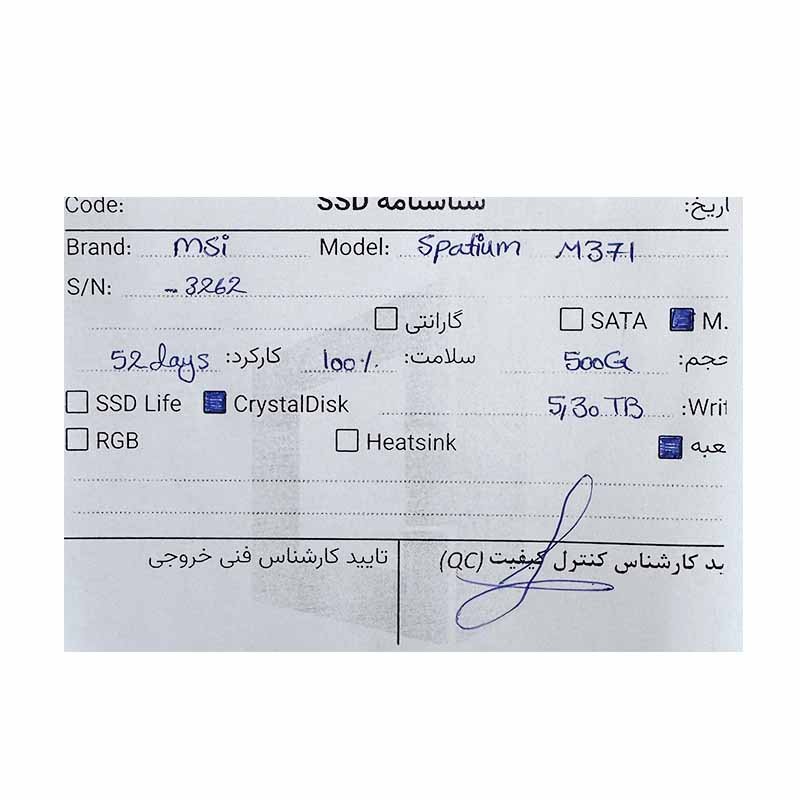 Code: شناسنامه SSD اریخ:
Brand: msi Model: Spatium M371
S/N: -3262
گارانتی SATA M.
حجم: 500G سلامت: 100% کارکرد: 52 days
SSD Life CrystalDisk 5,30 TB Writ:
RGB Heatsink عبه
ید کارشناس کنترل کیفیت (QC) تایید کارشناس فنی خروجی